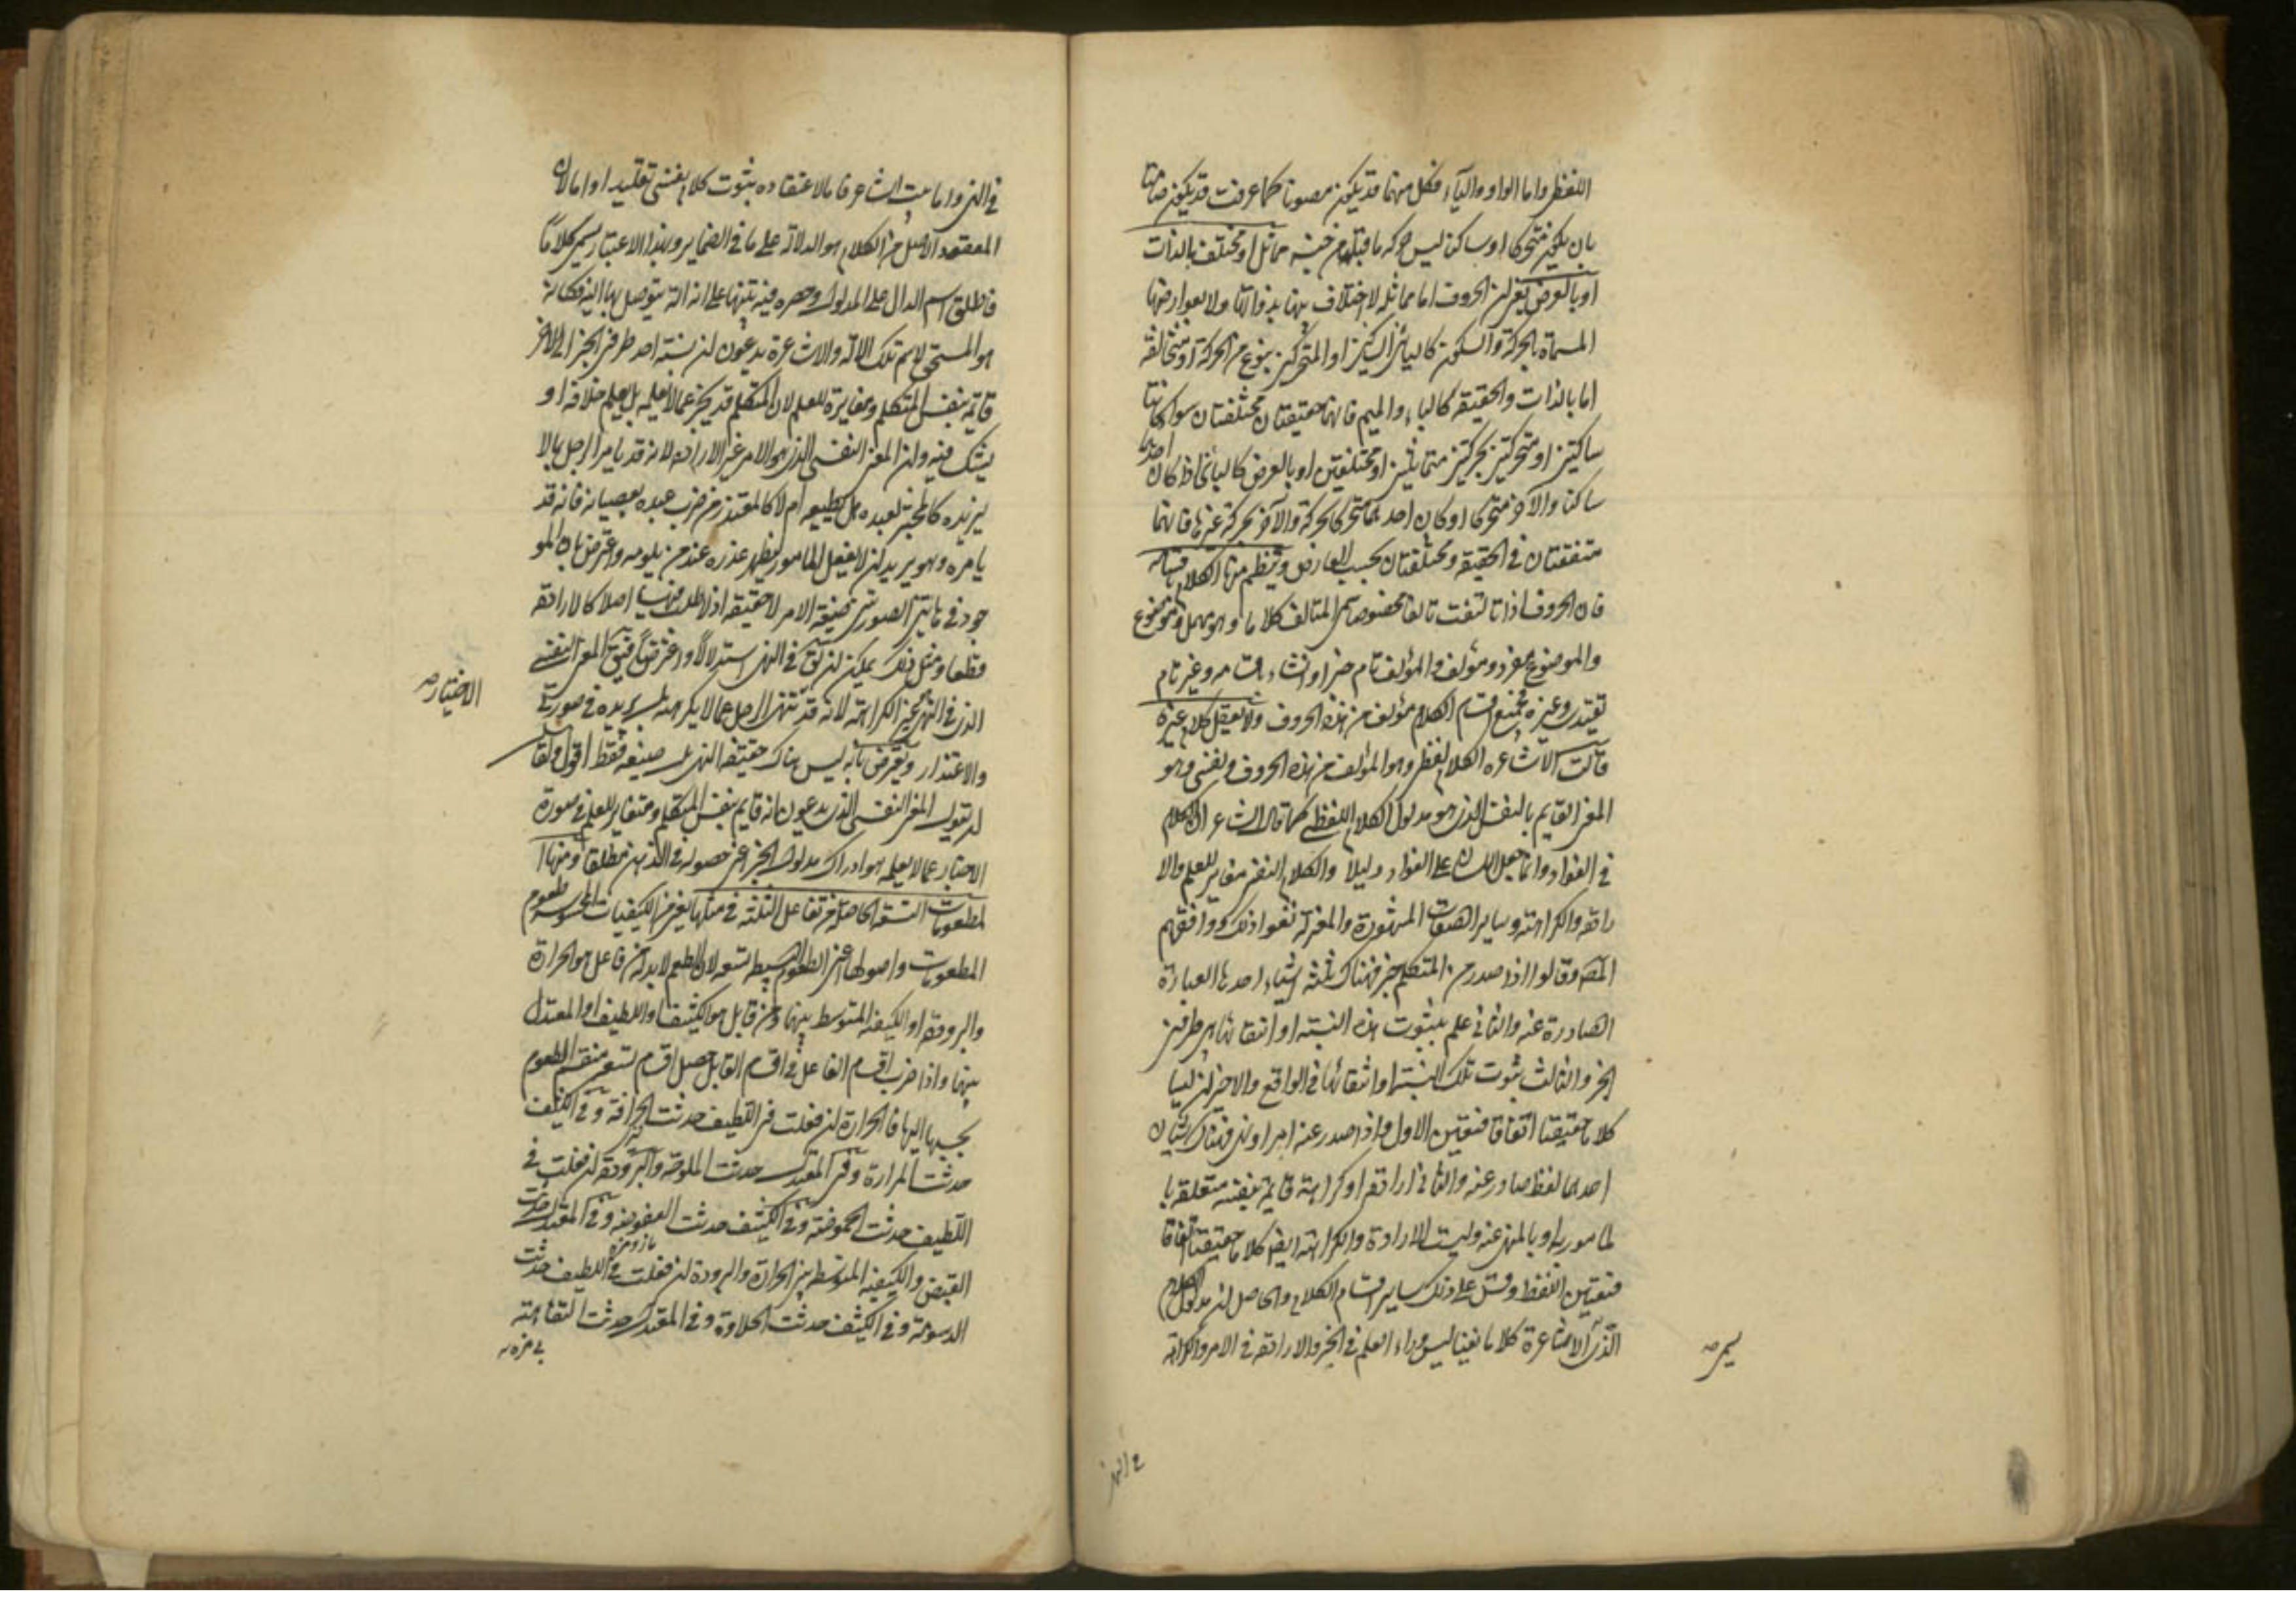 اللفظ واما الواو والياء فكل منهما قد يكون مصوتا كما عرفت وقد يكون صامتا
بان يكون متحركا او ساكنا ليس حركة ما قبله من جنسه متماثل او مختلف بالذات
او بالعرض يعنى ان الحروف اما متماثلة لا اختلاف بينها بذواتها ولا بعوارضها
المسماة بالحركة والسكون كالبائين الساكنين او المتحركين بنوع من الحركة او متخالفة
اما بالذات والحقيقة كالباء والميم فانهما حقيقتان مختلفتان سواء كانتا
ساكنتين او متحركتين بحركتين متماثلتين او مختلفتين او بالعرض كالبائين اذا كان احدهما
ساكنا والآخر متحركا او كان احدهما متحركا بحركة والآخر بحركة غيرها فانهما
متفقتان فى الحقيقة ومختلفتان بحسب العارض وينتظم منها الكلام باقسامه
فان الحروف اذا تالفت تالفا مخصوصا سمى المتالف كلاما وهو مهمل وموضوع
والموضوع مفرد ومؤلف والمؤلف تام خبر او انشاء وغير تام
تقييدى وغيره فجميع اقسام الكلام مؤلف من هذه الحروف ولا يعقل كلام غيره
قالت الاشاعره الكلام لفظى وهو المؤلف من هذه الحروف ونفسى وهو
المعنى القايم بالنفس الذى هو مدلول الكلام اللفظى كما قال الشاعر ان الكلام
فى الفؤاد وانما جعل اللسان على الفؤاد دليلا والكلام النفسى مغاير للعلم والا
رادة والكراهة وساير الصفات المشهورة والمعتزلة نفوا ذلك ووافقهم
المصر وقالوا اذا صدر من المتكلم خبر فهناك ثلثة اشياء احدها العبارة
الصادرة عنه والثانى علمه بثبوت هذه النسبة او انتفائها بين طرفى
الخبر والثالث ثبوت تلك النسبة او انتفائها فى الواقع والاخيران ليسا
كلاما حقيقيا اتفاقا فتعين الاول واذا صدر عنه امر او نهى فهناك شيئان
احدهما لفظ صادر عنه والثانى ارادة او كراهة قايمة بنفسه متعلقة با
لمامور به او بالمنهى عنه وليست الارادة والكراهة ايضا كلاما حقيقيا اتفاقا
فتعين اللفظ وقس على ذلك ساير اقسام الكلام والحاصل ان مدلول الكلام
الذى الاشاعرة كلاما نفسيا ليس وراء العلم فى الخبر والارادة فى الامر والكراهة
فى النهى
فى النهى واما بيت الشاعر فاما لاعتقاده بثبوت كلام نفسى تقليدا واما لان
المقصود الاصلى من الكلام هو الدلالة على ما فى الضماير وبهذا الاعتبار يسمى كلاما
فاطلق اسم الدال على المدلول وحصره فيه تنبيها على انه آلة يتوصل بها اليه فكانه
هو المستحق لاسم تلك الآلة والاشاعرة يدعون ان نسبة احد طرفى الخبر الى الآخر
قايمة بنفس المتكلم ومغايرة للعلم لان المتكلم قد يخبر عما لا يعلمه بل يعلم خلافه او
يشك فيه وان المعنى النفسى الذى هو الامر غير الارادة لانه قد يامر الرجل بما لا
يريده كالمختبر لعبده هل يطيعه ام لا كالمعتذر من ضرب عبده بعصيانه فانه قد
يامره وهو يريد ان لا يفعل المامور ليظهر عذره عند من يلومه واعترض بان المو
جود فى هاتين الصورتين صيغة الامر لا حقيقته اذ لا طلب فيهما اصلا كما لا ارادة
قطعا ومثل ذلك يمكن ان يقال فى النهى استدلالا واعتراضا فيقال المعنى النفسى
الذى فى النهى غير الكراهة لانه قد ينهى الرجل عما لا يكرهه بل يريده فى صورتى
الاختيار
والاعتذار ويعترض بانه ليس هناك حقيقة النهى بل صيغته فقط اقول
ان يقول المعنى النفسى الذى يدعون انه قايم بنفس المتكلم ومتغاير للعلم فى صورة
الاخبار عما لا يعلمه هو ادراك مدلول الخبر اعنى حصوله فى الذهن مطلقا ومنها ا
لمطعومات التسعة الحاصلة من تفاعل الثلثة فى مثلها يعنى من الكيفيات المحسوسة طعوم
المطعومات واصولها اعنى الطعوم البسيطة تسعة لان الطعم لا بد له من فاعل هو الحرارة
والبرودة او الكيفية المتوسط بينهما ومن قابل هو الكثيف او اللطيف او المعتدل
بينهما واذا ضرب اقسام الفاعل فى اقسام القابل حصل اقسام تسعة منقسم الطعوم
بحسبها اليها فالحرارة ان فعلت فى اللطيف حدثت الحرافة وفى الكثيف
حدثت المرارة وفى المعتدل حدثت الملوحة والبرودة ان فعلت فى
اللطيف حدثت الحموضة وفى الكثيف حدثت العفوصة وفى المعتدل حدثت
القبض والكيفية المتوسطة بين الحرارة والبرودة ان فعلت فى اللطيف حدثت
الدسومة وفى الكثيف حدثت الحلاوة وفى المعتدل حدثت التفاهة